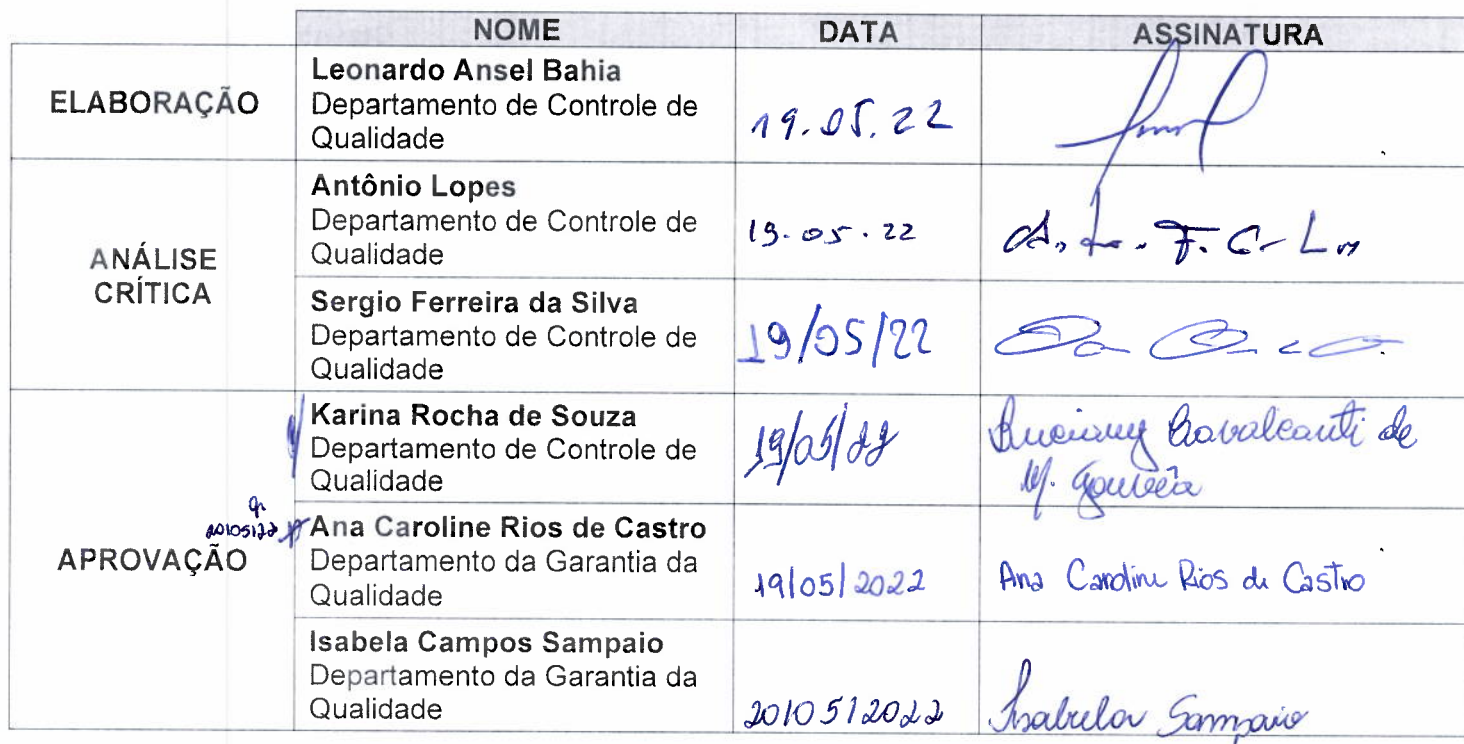 NOME DATA ASSINATURA
ELABORAÇÃO
Leonardo Ansel Bahia
Departamento de Controle de
Qualidade
19.05.22
ANÁLISE
CRÍTICA
Antônio Lopes
Departamento de Controle de
Qualidade
19.05.22
Sergio Ferreira da Silva
Departamento de Controle de
Qualidade
19/05/22
APROVAÇÃO
Karina Rocha de Souza
Departamento de Controle de
Qualidade
19/05/22
Cavalcanti de
M. Gouveia
20105122
Ana Caroline Rios de Castro
Departamento da Garantia da
Qualidade
19/05/2022
Ana Caroline Rios de Castro
Isabela Campos Sampaio
Departamento da Garantia da
Qualidade
20/05/2022
Isabela Sampaio